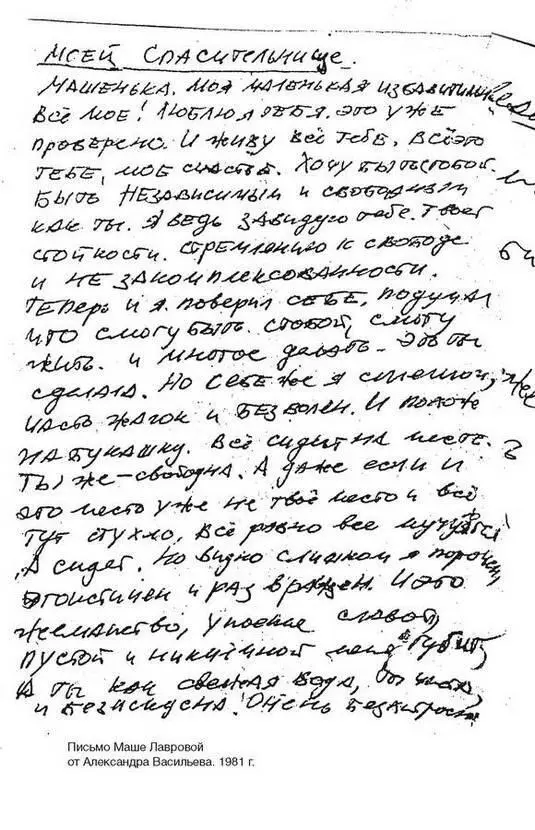 Моей Спасительнице.
Машенька. Моя маленькая
Всё моё! Люблю тебя. Это уже
проверено. И живу всё тебе, всё это
тебе, моё счастье. Хочу быть с тобой.
Быть независимым и свободным
как ты. Я ведь завидую тебе. Твоей
стойкости. Стремлению к свободе
и не закомплексованности.
Теперь и я поверил себе, подумал
что смогу быть с тобой, смогу
жить. и многое делать – это ты
сделала. Но себе же я смешон,
часть жалок и безволен. И похож
на букашку. Всё сидит на месте.
Ты же – свободна. А даже если и
это место уже не твоё место и всё
тут стухло, всё ровно все
А сидят. Но видно слишком я порочен,
эгоистичен и развращен. И это
жеманство, упоение славой,
пустой и никчёмной меня губит,
А ты как свежая вода, ты чиста,
и безискусна! Очень
Письмо Маше Лавровой
от Александра Васильева. 1981 г.